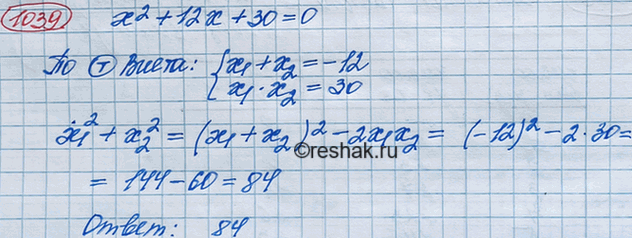 1039 x² + 12x + 30 = 0
По Т Виета: { x₁ + x₂ = -12
x₁ · x₂ = 30
x₁² + x₂² = (x₁ + x₂)² - 2x₁x₂ = (-12)² - 2·30 =
©reshak.ru
= 144 - 60 = 84
Ответ: 84